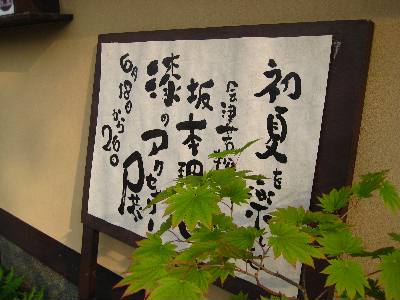 初夏を楽し
会津若松
坂本理
漆のアクセサリー
6月18日から26日